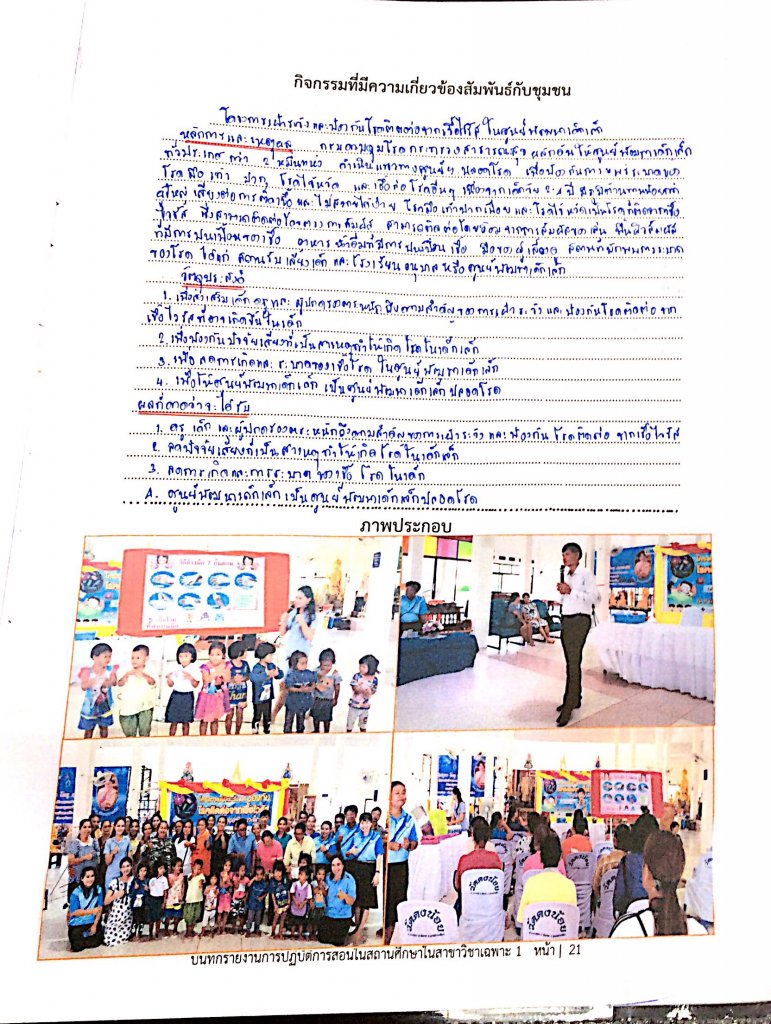 กิจกรรมที่มีความเกี่ยวข้องสัมพันธ์กับชุมชน
โครงการเฝ้าระวังและป้องกันโรคติดต่อจากเชื้อไวรัส ในศูนย์พัฒนาเด็กเล็ก
หลักการและเหตุผล กรมควบคุมโรค กระทรวงสาธารณสุข ผลักดันให้ศูนย์พัฒนาเด็กเล็ก
ทั่วประเทศกว่า 2 หมื่นแห่ง ดำเนินแนวทางศูนย์ฯ ปลอดโรค เพื่อป้องกันการแพร่ระบาดของ
โรคมือ เท้า ปาก โรคไข้หวัด และเชื้อต่อโรคอื่นๆ เนื่องจากเด็กวัย 2-5 ปี
ผู้ใหญ่ เสี่ยงต่อการติดเชื้อและไม่สบายได้ง่าย โรคมือเท้าปากเปื่อยและโรคไข้หวัดเป็นโรคที่ติดจากเชื้อ
ไวรัส ซึ่งสามารถติดต่อโดยทางการสัมผัส
ที่มีการปนเปื้อนของเชื้อ อาหาร น้ำดื่มที่มีการปนเปื้อน เชื้อ มือของผู้เลี้ยงดู สถานที่มักพบการระบาด
ของโรค ได้แก่ สถานรับเลี้ยงเด็ก และโรงเรียนอนุบาล หรือศูนย์พัฒนาเด็กเล็ก
วัตถุประสงค์
1. เพื่อส่งเสริมเด็ก ครู และ ผู้ปกครองตระหนักถึงความสำคัญของการเฝ้าระวัง และป้องกันโรคติดต่อ จาก
เชื้อไวรัสที่อาจเกิดขึ้นในเด็ก
2. เพื่อป้องกันปัจจัยเสี่ยงที่เป็นสาเหตุทำให้เกิด โรคในเด็กเล็ก
3. เพื่อ ลดการเกิดและระบาดของเชื้อโรค ในศูนย์พัฒนาเด็กเล็ก
4. เพื่อให้ศูนย์พัฒนาเด็กเล็ก เป็นศูนย์พัฒนาเด็กเล็กปลอดโรค
ผลที่คาดว่าจะได้รับ
1. ครู เด็ก และผู้ปกครองตระหนักถึงความสำคัญของการเฝ้าระวัง และป้องกัน โรคติดต่อ จากเชื้อไวรัส
2. ลดปัจจัยเสี่ยงที่เป็นสาเหตุทำให้เกิดโรคในเด็กเล็ก
3. ลดการเกิดและการระบาดของเชื้อ โรคในเด็ก
4. ศูนย์พัฒนาเด็กเล็กเป็นศูนย์พัฒนาเด็กเล็กปลอดโรค
ภาพประกอบ
วิธีล้างมือ 7 ขั้นตอน
วัดคงน้อย
วัดคงน้อย
บันทึกรายงานการปฏิบัติการสอนในสถานศึกษาในสาขาวิชาเฉพาะ 1 หน้า| 21